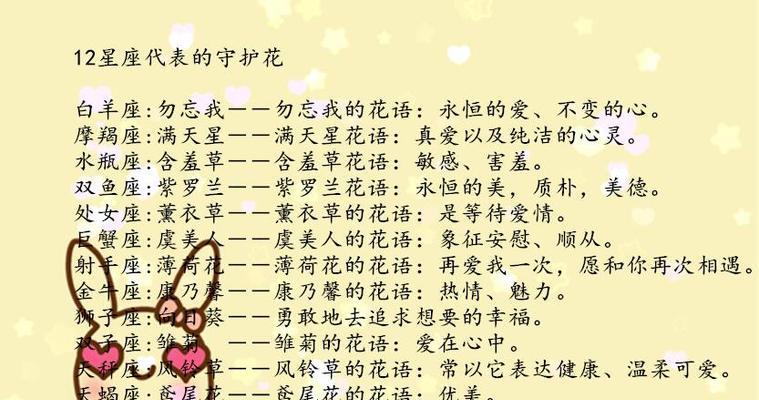 12星座代表的守护花
白羊座:勿忘我——勿忘我的花语：永恒的爱、不变的心。
摩羯座:满天星——满天星花语：真爱以及纯洁的心灵。
水瓶座:含羞草——含羞草花语：敏感、害羞。
双鱼座:紫罗兰——紫罗兰花语：永恒的美，质朴，美德。
处女座:薰衣草——薰衣草的花语：是等待爱情。
巨蟹座:虞美人——虞美人的花语：象征安慰、顺从。
射手座:薄荷花——薄荷花的花语：再爱我一次，愿和你再次相遇。
金牛座:康乃馨——康乃馨的花语：热情、魅力。
狮子座:向日葵——勇敢地去追求想要的幸福。
双子座:雏菊 ——雏菊的花语：爱在心中。
天秤座:风铃草——风铃草的花语：常以它表达健康、温柔可爱。
天蝎座:鸢尾花——鸢尾花的花语：优美。